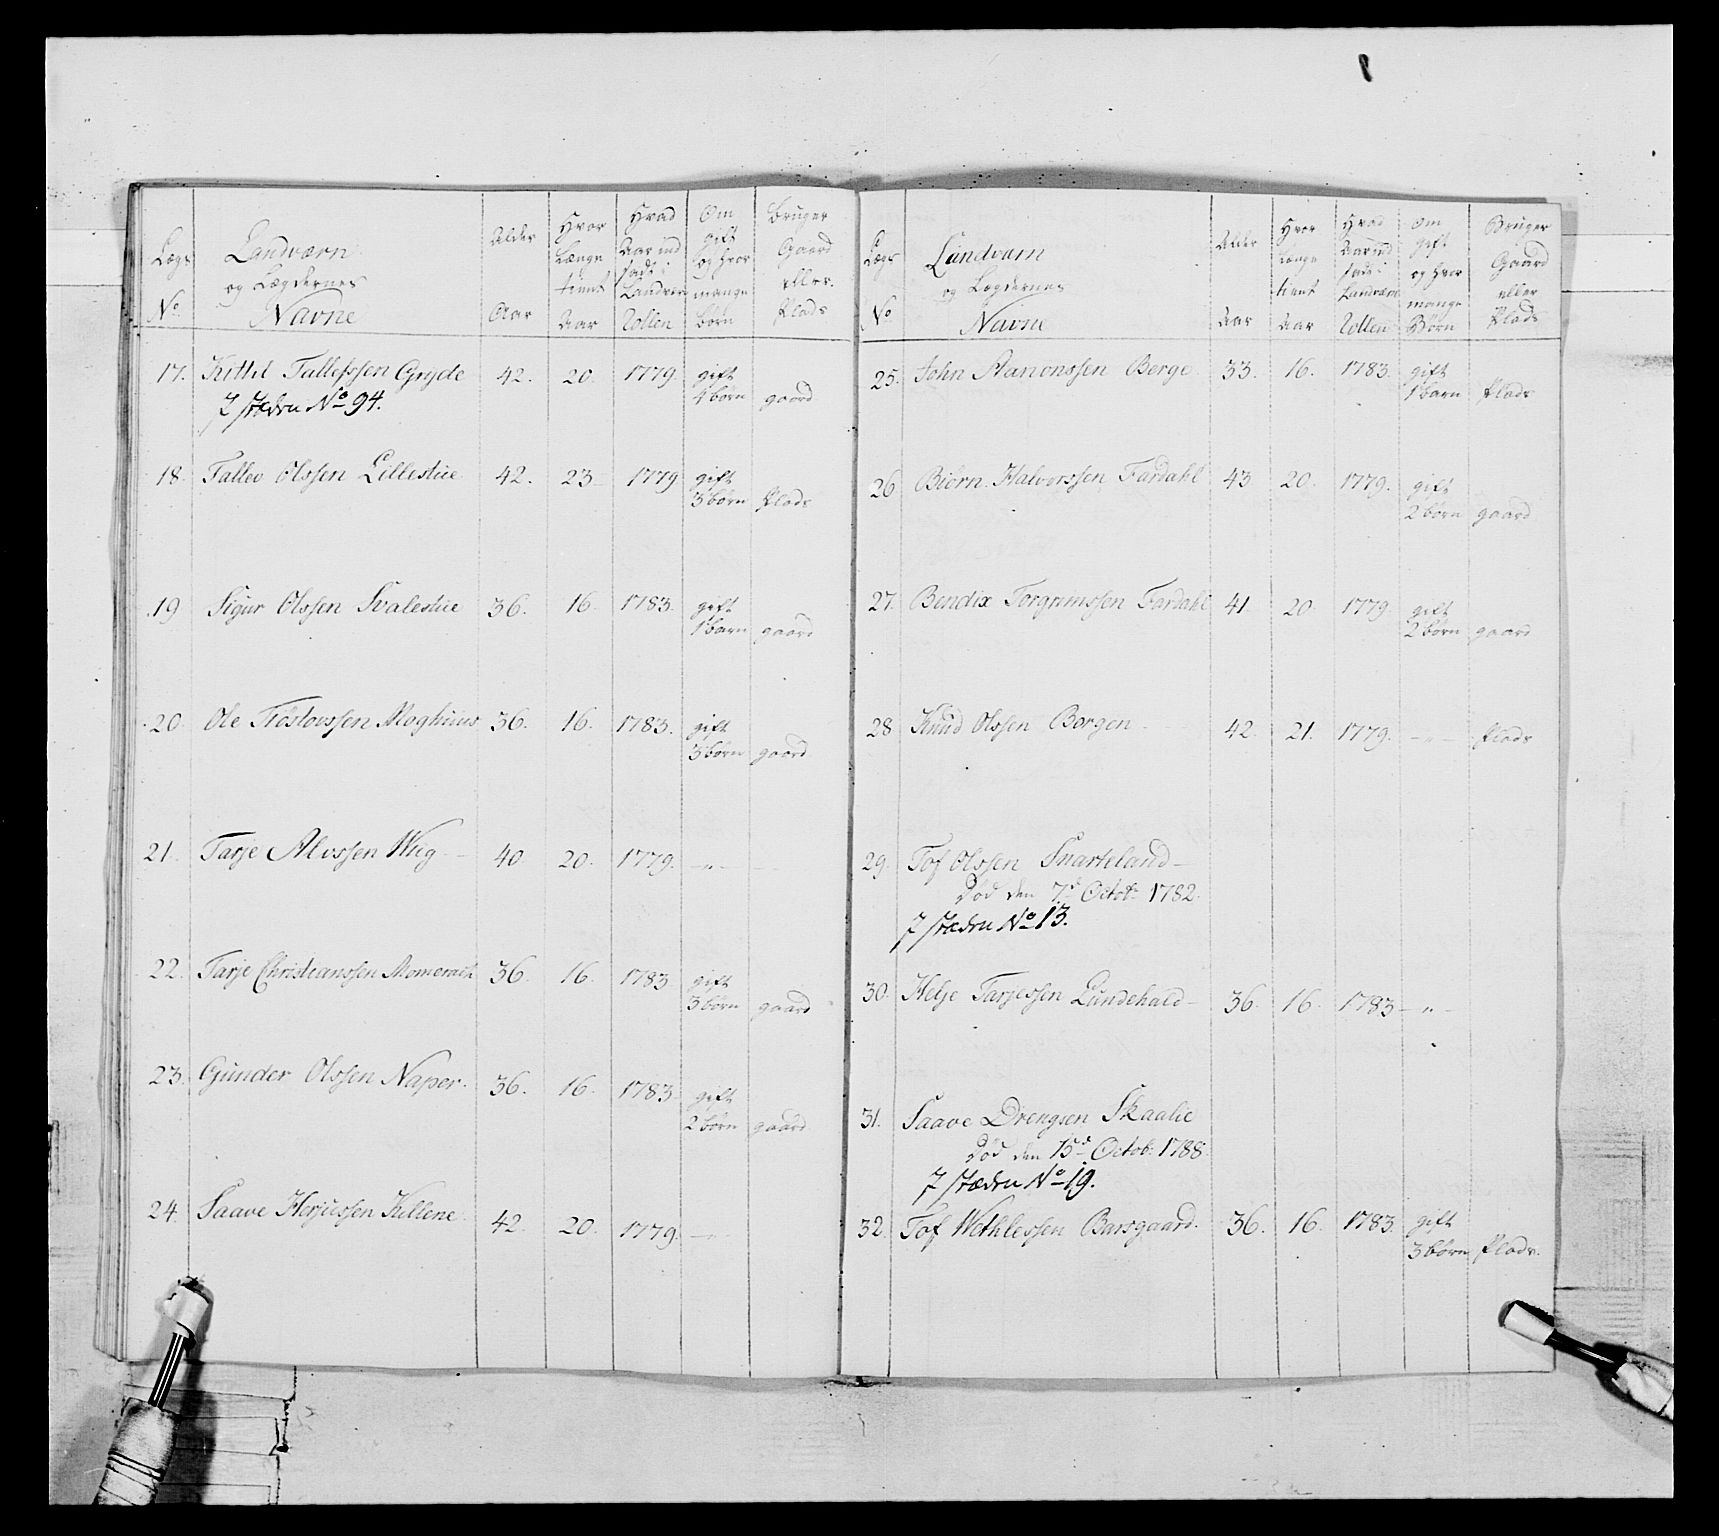 Lægs No
Landværn og Lægdernes Navne
Alder Aar
Hvor Længe tient Aar
Hvad Aar ind sadt i Landværn Rollen
Om gift og hvor mange børn
bruger Gaard eller Plads
17. Kittil Tallefssen Gryde 42. 20. 1779. gift 4 børn gaard
I stæden No 94.
18. Tallev Olssen Lillestue 42. 23 1779 gift 3 børn Plads
19 Sigur Olssen Svalestue 36. 16. 1783. gift 1 barn gaard
20. Ole Tiostovssen Moghuus 36. 16. 1783. gift 3 børn gaard
21. Tarje Alvssen Wiig 40. 20. 1779. - " -
22. Tarje Christianssen Momerach 36. 16. 1783. gift 3 børn gaard
23. Gunder Olssen Naper. 36. 16. 1783. gift 2 børn gaard
24. Saave Herjussen Killene 42. 20. 1779. - " -
Lægs No
Landværn og Lægdernes Navne
Alder Aar
Hvor Længe tient Aar
Hvad Aar ind sadt i Landværn Rollen
Om gift og hvor mange Børn
Bruger Gaard eller Plads
25. John Aanonssen Berge 33. 16. 1783. gift 1 barn Plads
26 Biørn Halvorssen Fardahl 43 20. 1779. gift 2 børn gaard
27. Bendix Torgrimssen Fardahl 41. 20. 1779. gift 2 børn gaard
28 Knud Olssen Borgen 42. 21. 1779. - " - Plads
29. Tof Olssen Snarteland
Død den 7de Octob: 1782.
I stæden No 13.
30. Helje Tarjessen Lundehald 36. 16. 1783 - " -
31. Saave Drengsen Skaalie
Død den 15de Octob: 1788.
I stæden No 19.
32. Tof Wethlessen Barsgaard. 36. 16. 1783. gift 3 børn Plads.